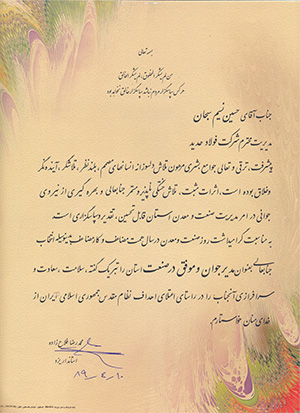 بسمه تعالی
من لم یشکر المخلوق، لم یشکر الخالق
هر کس سپاسگزار مردم نباشد سپاسگزار خالق نخواهد بود
جناب آقای حسین نسیم سبحان
مدیریت محترم شرکت فولاد حدید
پیشرفت، ترقی و تعالی جوامع بشری مرهون تلاش دلسوزانه انسانهای مصمم، بلندنظر، تلاشگر، آینده نگر
و خلاق بوده است، اثرات مثبت، تلاش خستگی ناپذیر و مستمر جنابعالی و بهره گیری از نیروی
جوانی در امر مدیریت صنعت و معدن استان قابل تحسین، تقدیر و سپاسگزاری است.
به مناسبت گرامیداشت روز صنعت و معدن در سال همت مضاعف و کار مضاعف بدینوسیله انتخاب
جنابعالی بعنوان مدیر جوان و موفق در صنعت استان را تبریک گفته، سلامت، سعادت و
سرافرازی آنجناب را در راستای اعتلای اهداف نظام مقدس جمهوری اسلامی ایران از
خدای منان خواستارم.
محمد رضا فلاح زاده
استاندار یزد
۸۹/۴/۱۰